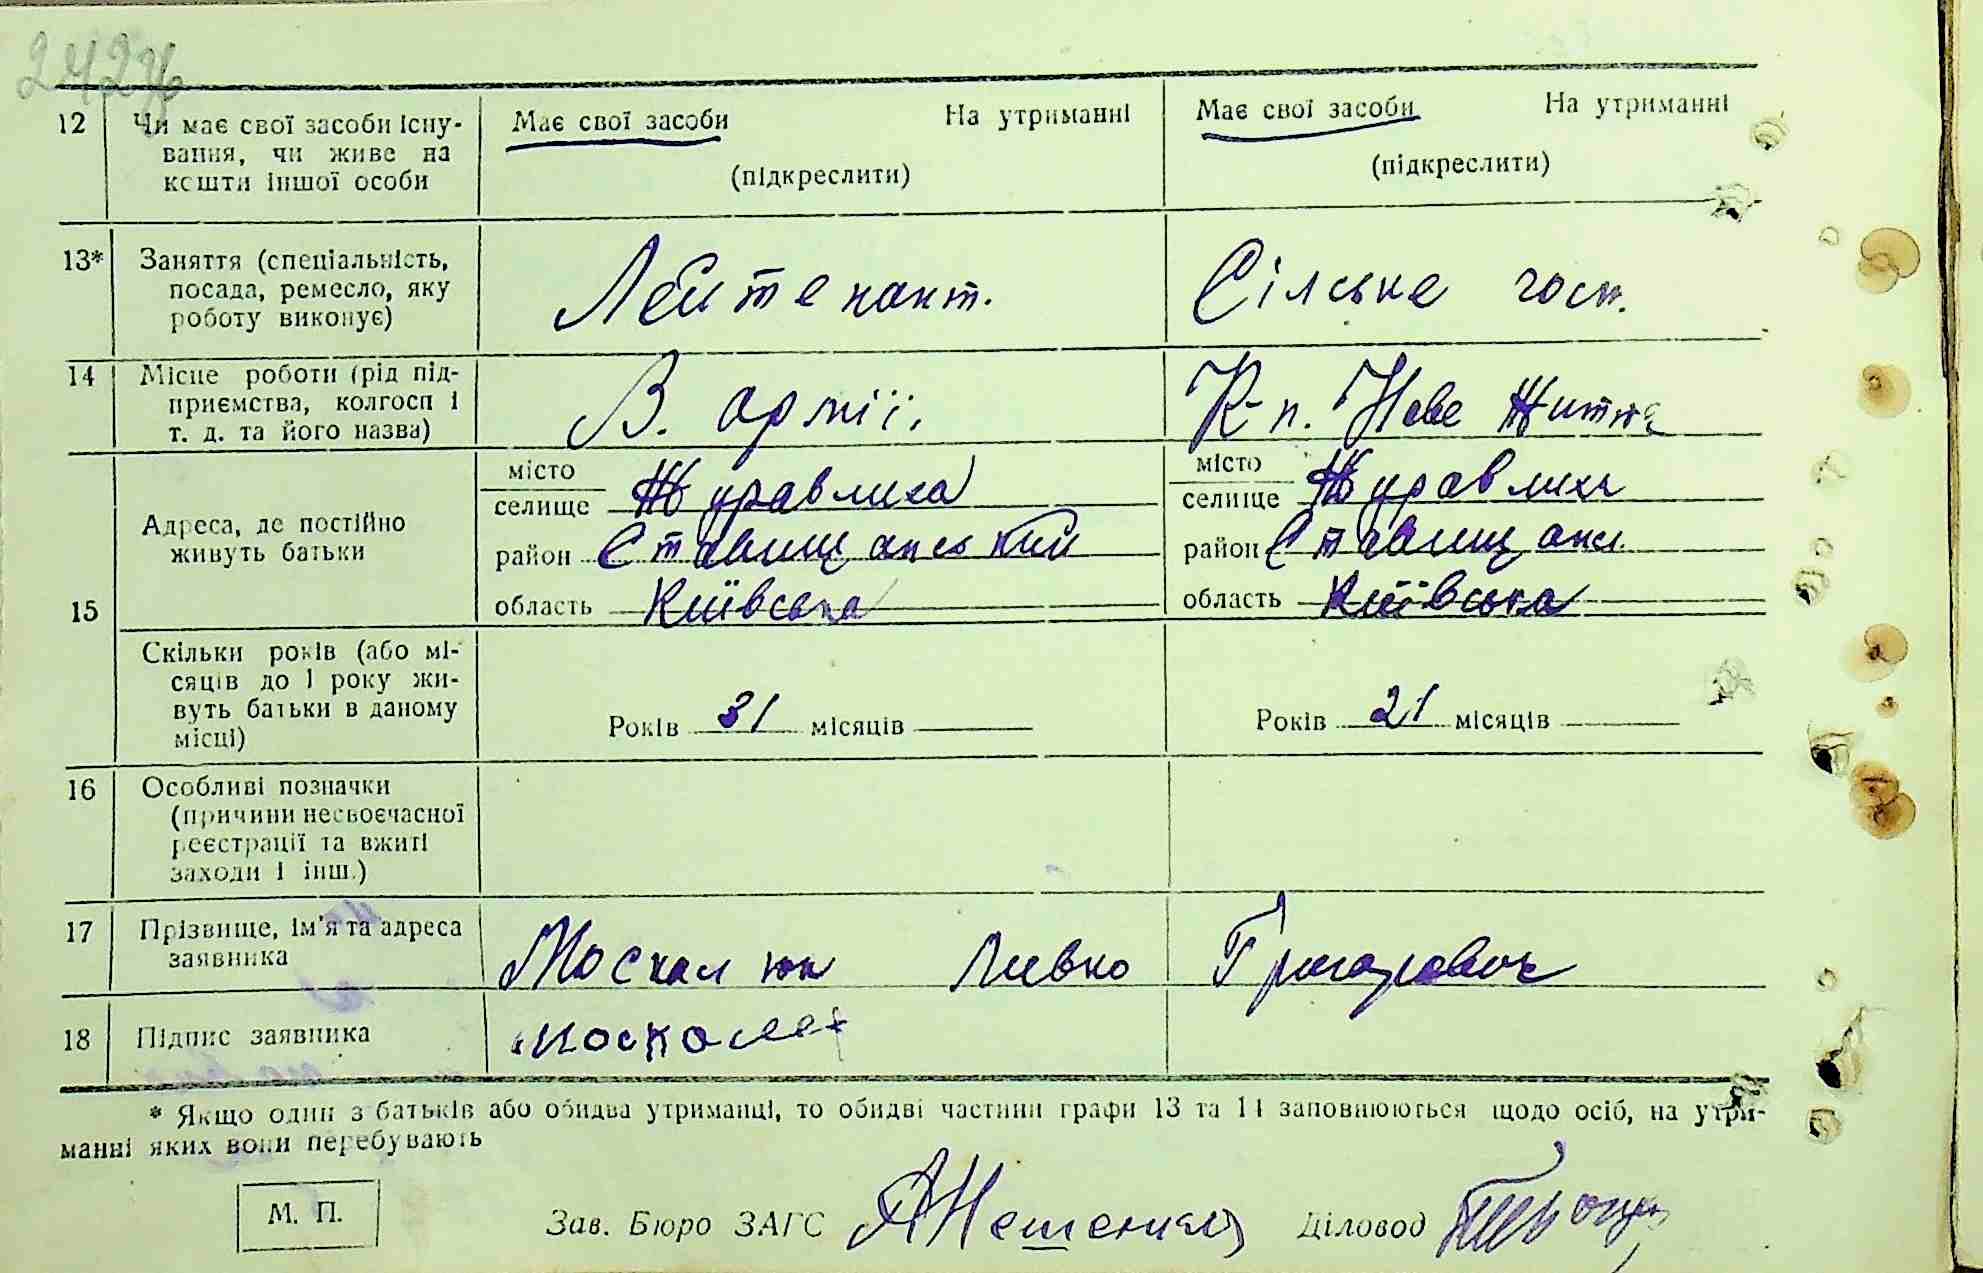 242
12 Чи має свої засоби існу-
вання, чи живе на
кошти іншої особи
Має свої засоби На утриманні
(підкреслити)
Має свої засоби На утриманні
(підкреслити)
13* Заняття (спеціальність,
посада, ремесло, яку
роботу виконує)
Лейтенант.
Сілське госп.
14 Місце роботи (рід під-
приємства, колгосп і
т. д. та його назва)
В. армії.
К-п. Нове Життя
15
Адреса, де постійно
живуть батьки
місто
селище Журавлиха
район Ставищанський
область Київська
місто
селище Журавлиха
район Ставищанс.
область Київська
Скільки років (або мі-
сяців до 1 року жи-
вуть батьки в даному
місці)
Років 31 місяців
Років 21 місяців
16 Особливі позначки
(причини несвоєчасної
реєстрації та вжиті
заходи і інш.)
17 Прізвище, ім'я та адреса
заявника
Москалюк Левко Григорович
18 Підпис заявника
* Якщо один з батьків або обидва утриманці, то обидві частини графи 13 та 14 заповнюються щодо осіб, на утри-
манні яких вони перебувають
М. П.
Зав. Бюро ЗАГС
Діловод